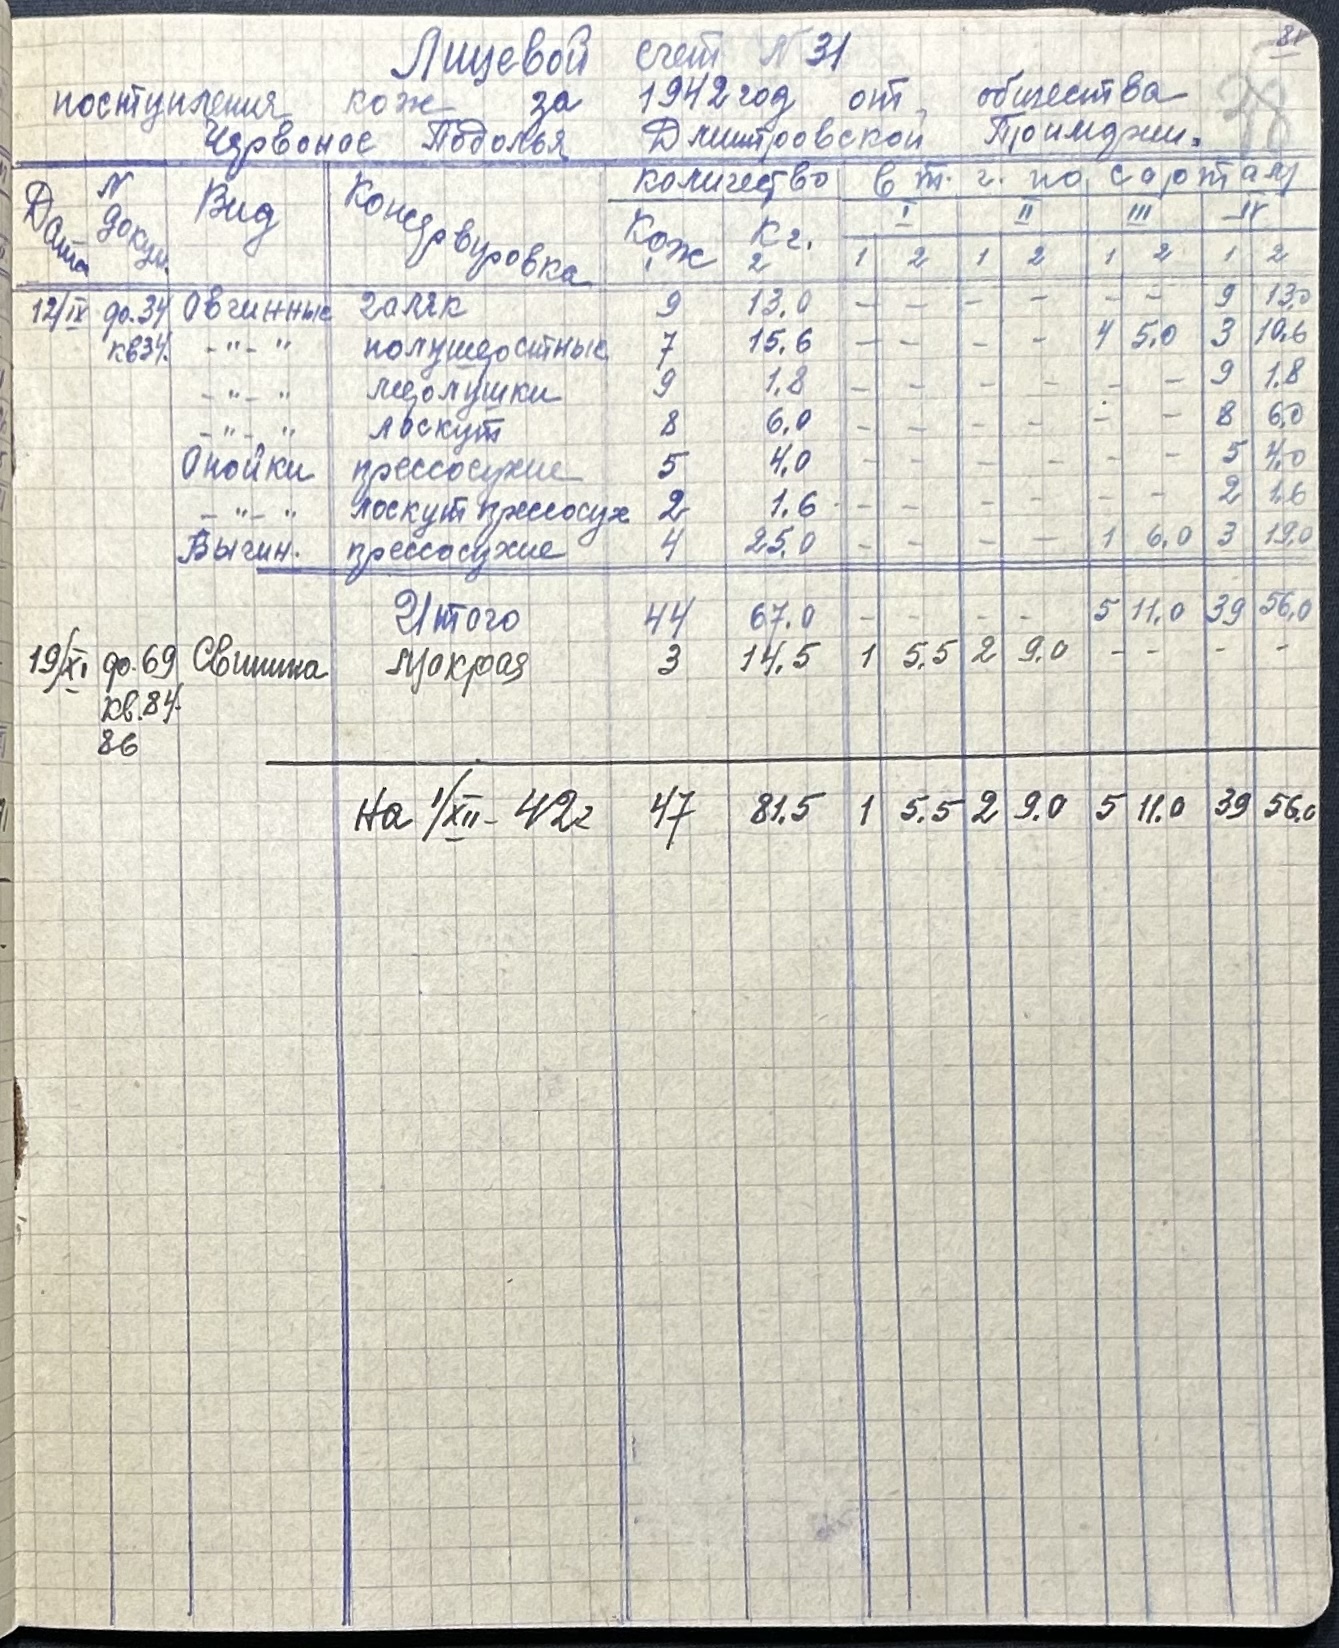 81
38
Лицевой счет N 31
поступления кож за 1942 год от общества
Червоное Подолья Дмитровской
Дата N докум. Вид Консервировка количество в т. ч. по сортам
Кож Кг. I II III IV
1 2 1 2 1 2 1 2 1 2
12/IX до.34 Овчинные галяк 9 13.0 - - - - - - 9 13.0
кв34. -"-" полушерстные 7 15.6 - - - - 4 5.0 3 10.6
-"-" мерлушки 9 1.8 - - - - - - 9 1.8
-"-" лоскут 8 6.0 - - - - - - 8 6.0
Опойки прессосухие 5 4.0 - - - - - - 5 4.0
-"-" лоскут прессосух 2 1.6 - - - - - - 2 1.6
прессосухие 4 25.0 - - - - 1 6.0 3 19.0
Итого 44 67.0 - - - - 5 11.0 39 56.0
19/XI до.69 Свинина мокрая 3 14.5 1 5.5 2 9.0 - - - -
кв.84.
86
На 1/XII-42г 47 81.5 1 5.5 2 9.0 5 11.0 39 56.0